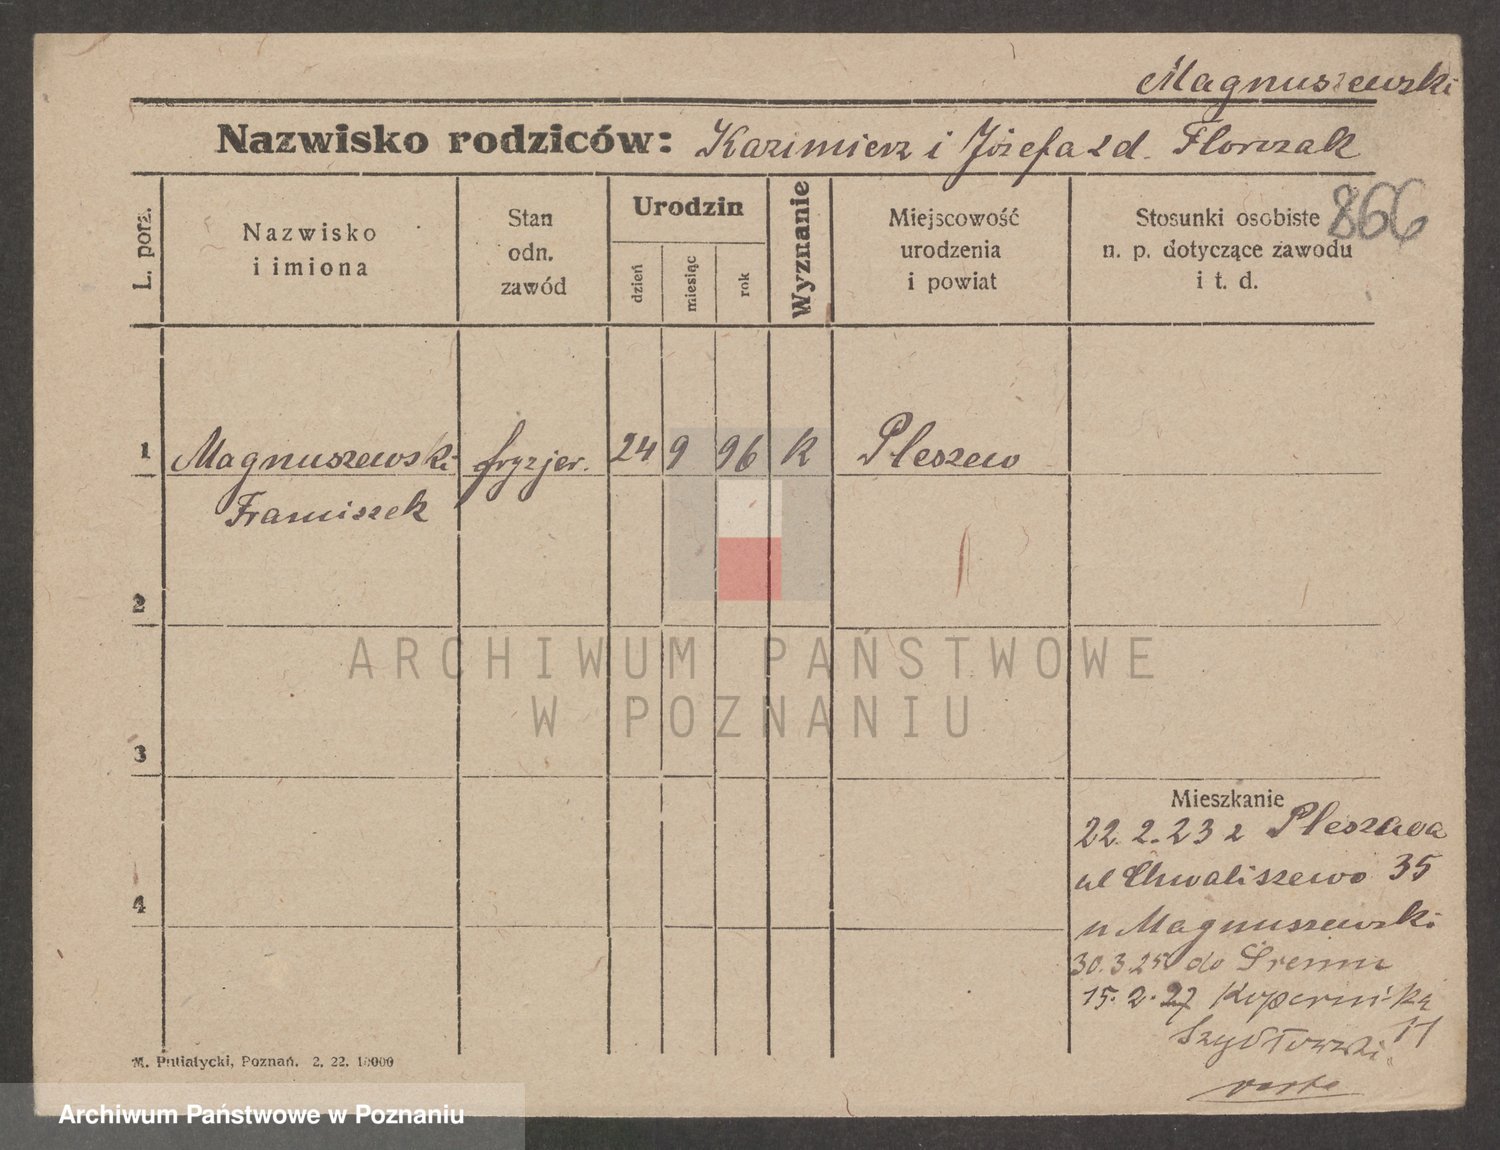 Magnuszewski
Nazwisko rodziców: Kazimierz i Józefa z d. Florczak
866
L. porz.
Nazwisko
i imiona
Stan
odn.
zawód
Urodzin
dzień
miesiąc
rok
Wyznanie
Miejscowość
urodzenia
i powiat
Stosunki osobiste
n. p. dotyczące zawodu
i t. d.
1 Magnuszewski fryzjer. 24 9 96 k Pleszew
Franciszek
2
ARCHIWUM PAŃSTWOWE
W POZNANIU
3
Mieszkanie
22. 2. 23 z Pleszewa
ul Chwaliszewo 35
4
u Magnuszewski
30. 3. 25 do Śremu
15. 2. 27 Kopernika
11
M. Putiatycki, Poznań. 2. 22. 10000
Archiwum Państwowe w Poznaniu